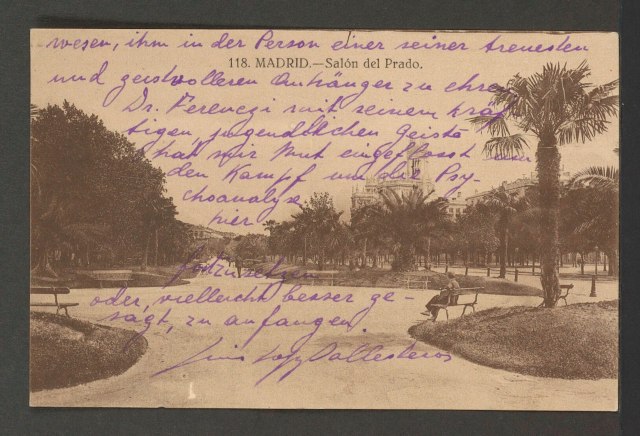 wesen, ihm in der Person einer seiner treuesten
118. MADRID.—Salón del Prado.
und geistvolleren Anhänger zu ehren
Dr. Ferenczi mit seinem kräf-
tigen, jugendlichen Geiste
hat mir Mut eingeflosst um
den Kampf um die Psy-
choanalyse
hier
fortzusetzen
oder, vielleicht besser ge-
sagt, zu anfangen.
Luis Lopez Ballesteros